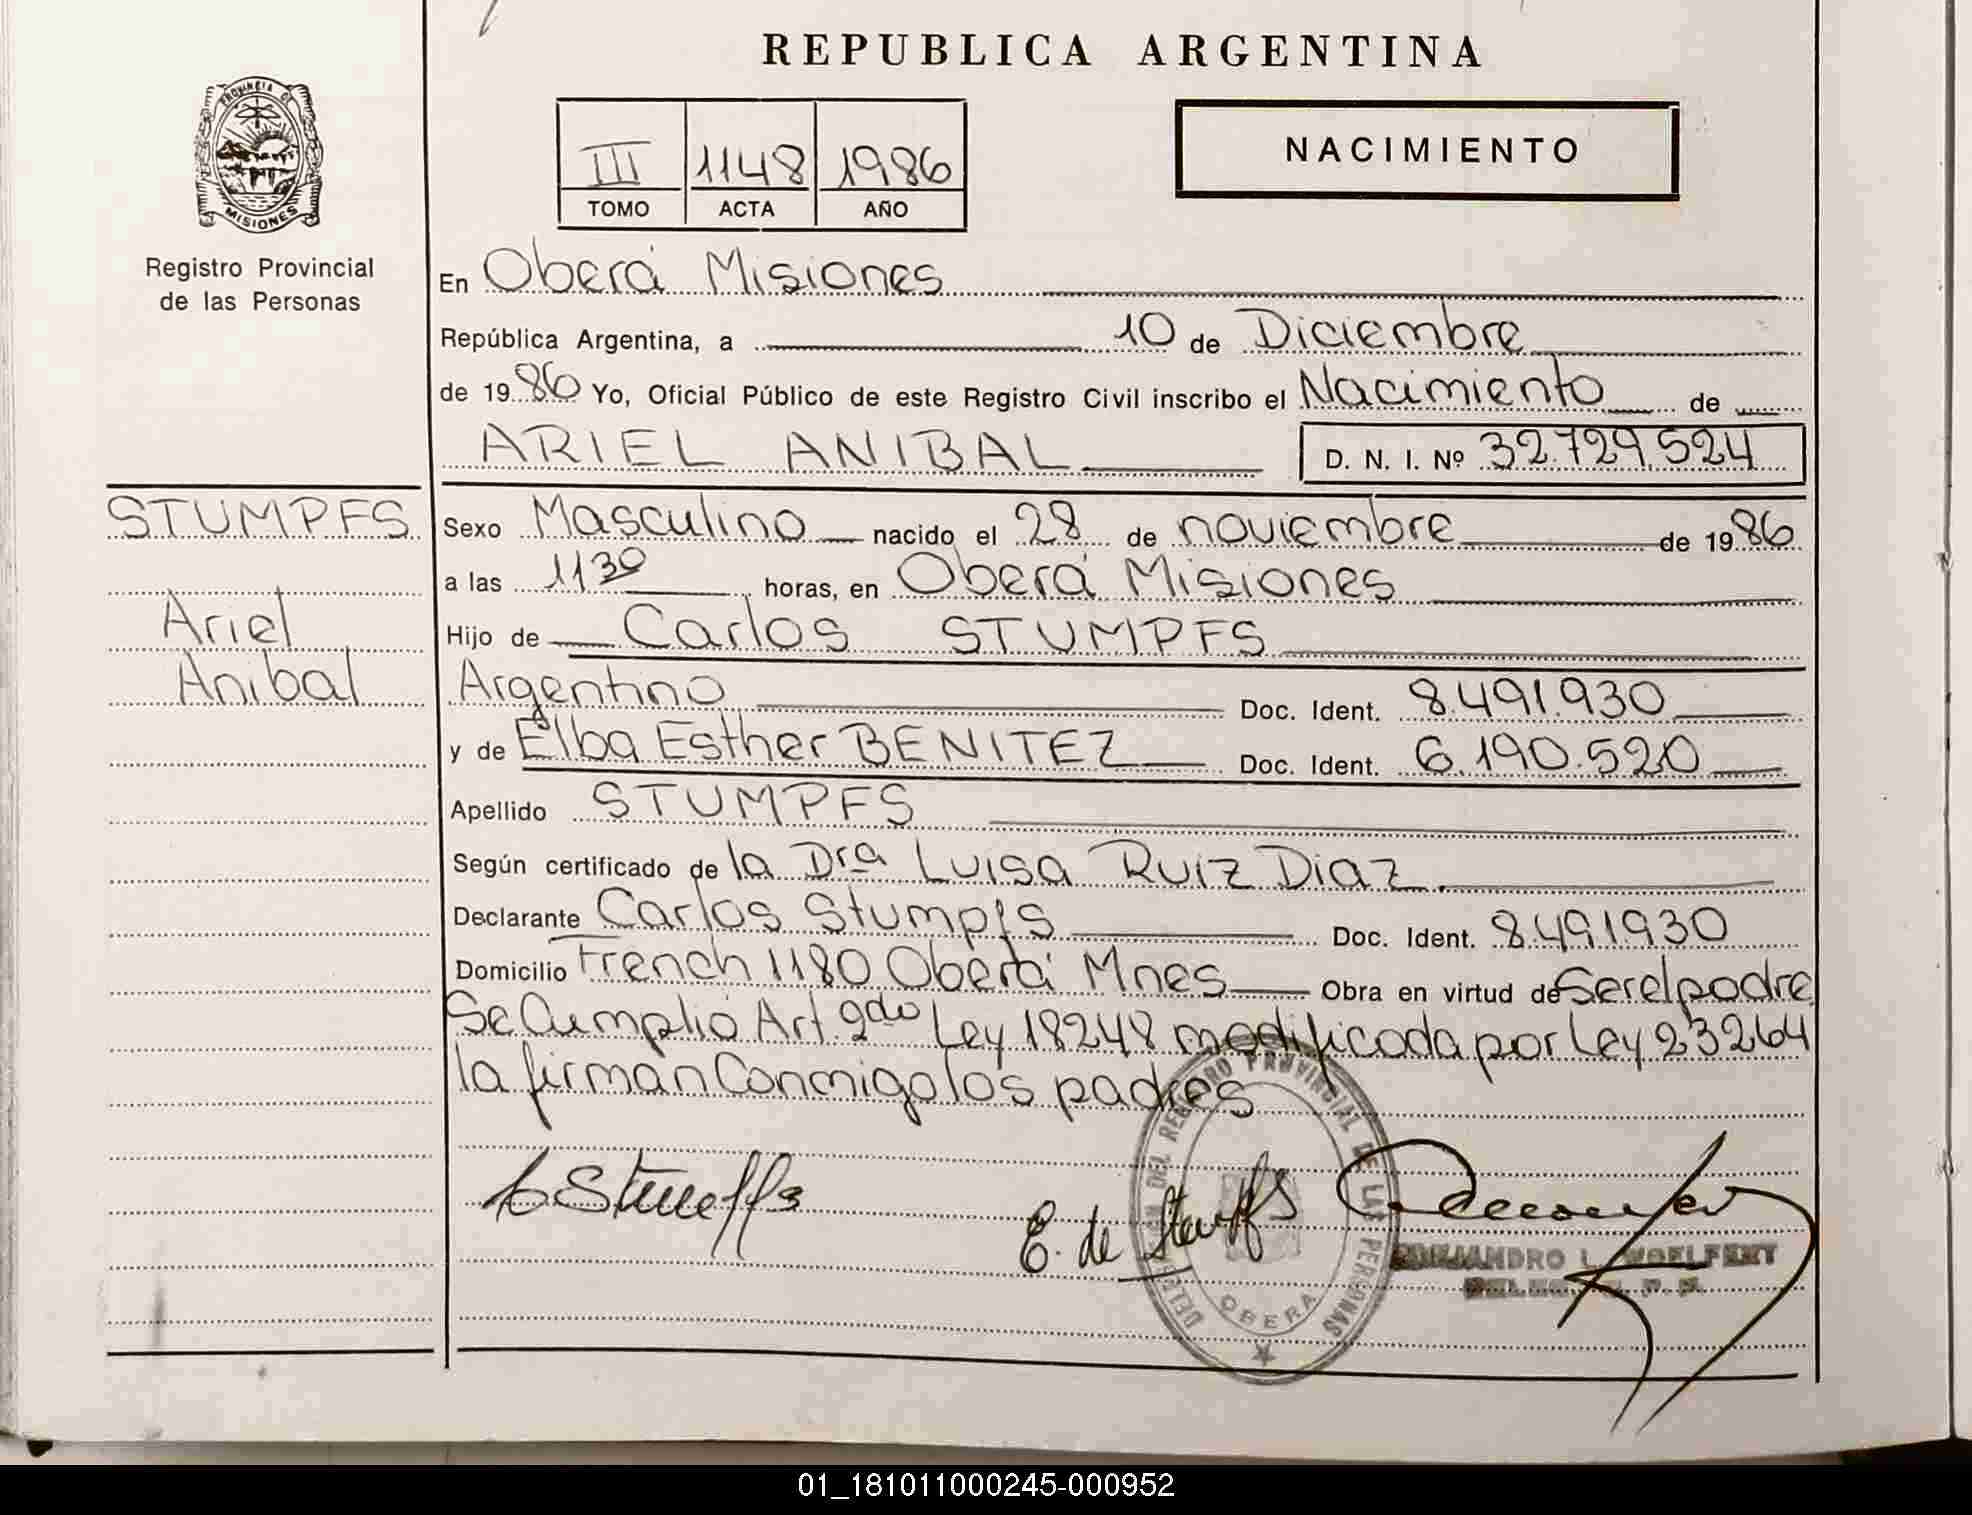 REPUBLICA ARGENTINA
PROVINCIA DE
MISIONES
Registro Provincial
de las Personas
III 1148 1986
TOMO ACTA AÑO
NACIMIENTO
En Oberá Misiones
República Argentina, a 10 de Diciembre
de 1986 Yo, Oficial Público de este Registro Civil inscribo el Nacimiento de
ARIEL ANIBAL D. N. I. Nº 32.729.524
STUMPFS
Ariel
Anibal
Sexo Masculino nacido el 28 de noviembre de 1986
a las 11 30 horas, en Oberá Misiones
Hijo de Carlos STUMPFS
Argentino Doc. Ident. 8.491.930
y de Elba Esther BENITEZ Doc. Ident. 6.190.520
Apellido STUMPFS
Según certificado de la Dra Luisa Ruiz Diaz.
Declarante Carlos Stumpfs Doc. Ident. 8.491930
Domicilio French 1180 Oberá Mnes Obra en virtud de Ser el padre
Se Cumplió Art. 2do Ley 18248 modificada por Ley 23264
la firman Conmigo los padres
E. de
DEL REGISTRO PROVINCIAL DE LAS PERSONAS
OBERA
01_181011000245-000952